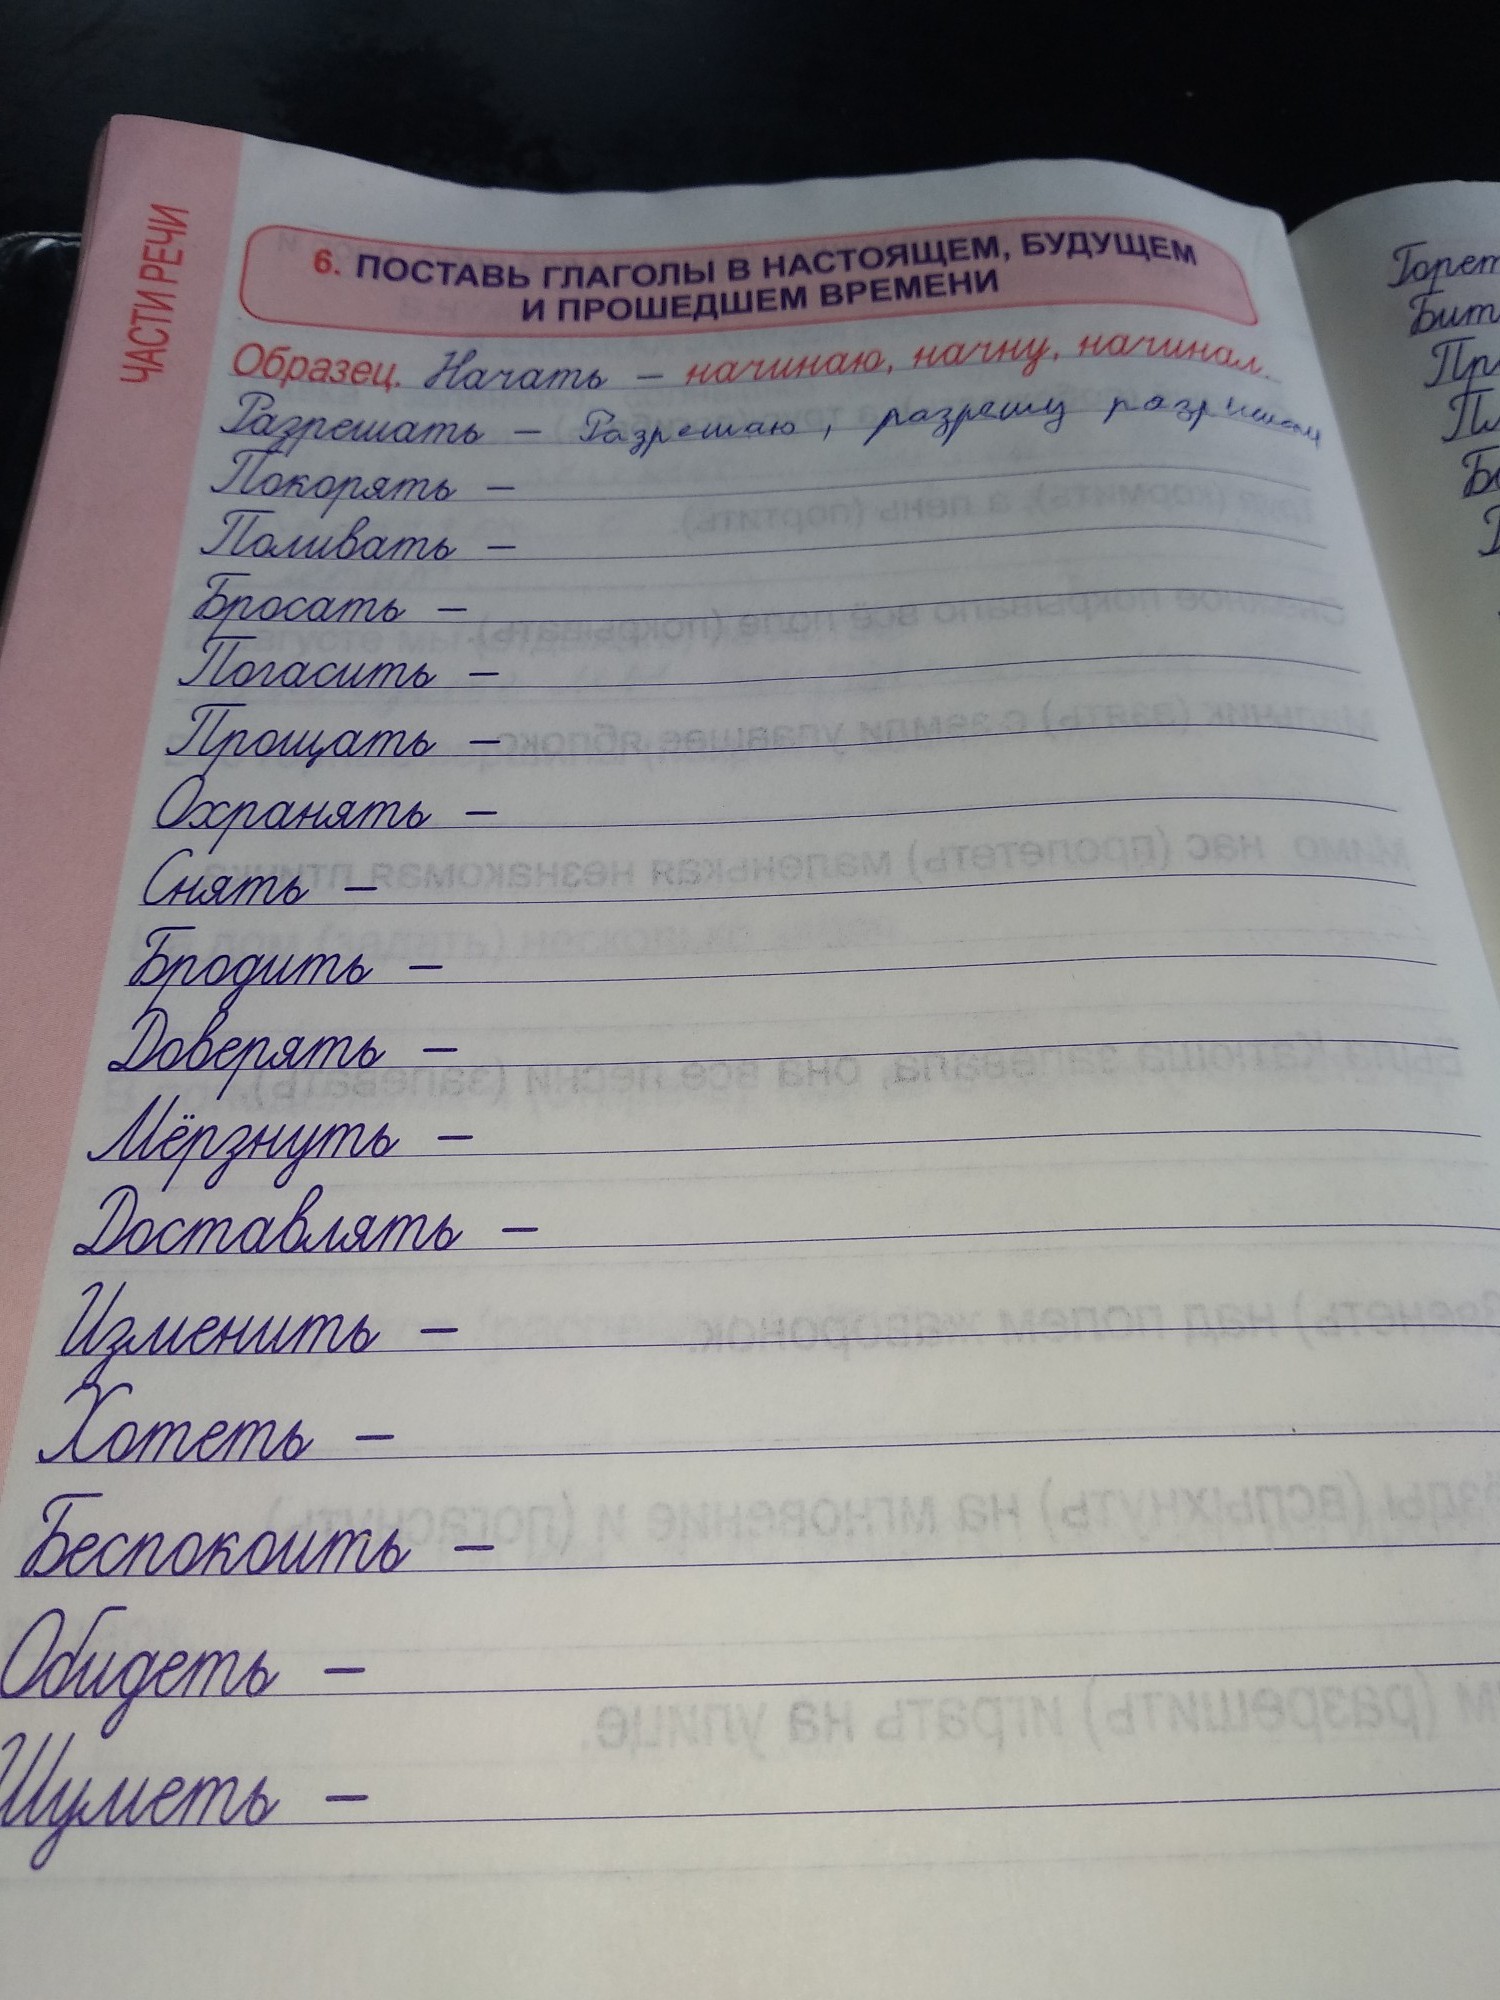 ЧАСТИ РЕЧИ
6. ПОСТАВЬ ГЛАГОЛЫ В НАСТОЯЩЕМ, БУДУЩЕМ
И ПРОШЕДШЕМ ВРЕМЕНИ
Образец. Начать – начинаю, начну, начинал.
Разрешать – Разрешаю, разрешу разрешал
Покорять –
Поливать –
Бросать –
Погасить –
Прощать –
Охранять –
Снять –
Бродить –
Доверять –
Мёрзнуть –
Доставлять –
Изменить –
Хотеть –
Беспокоить –
Обидеть –
Шуметь –